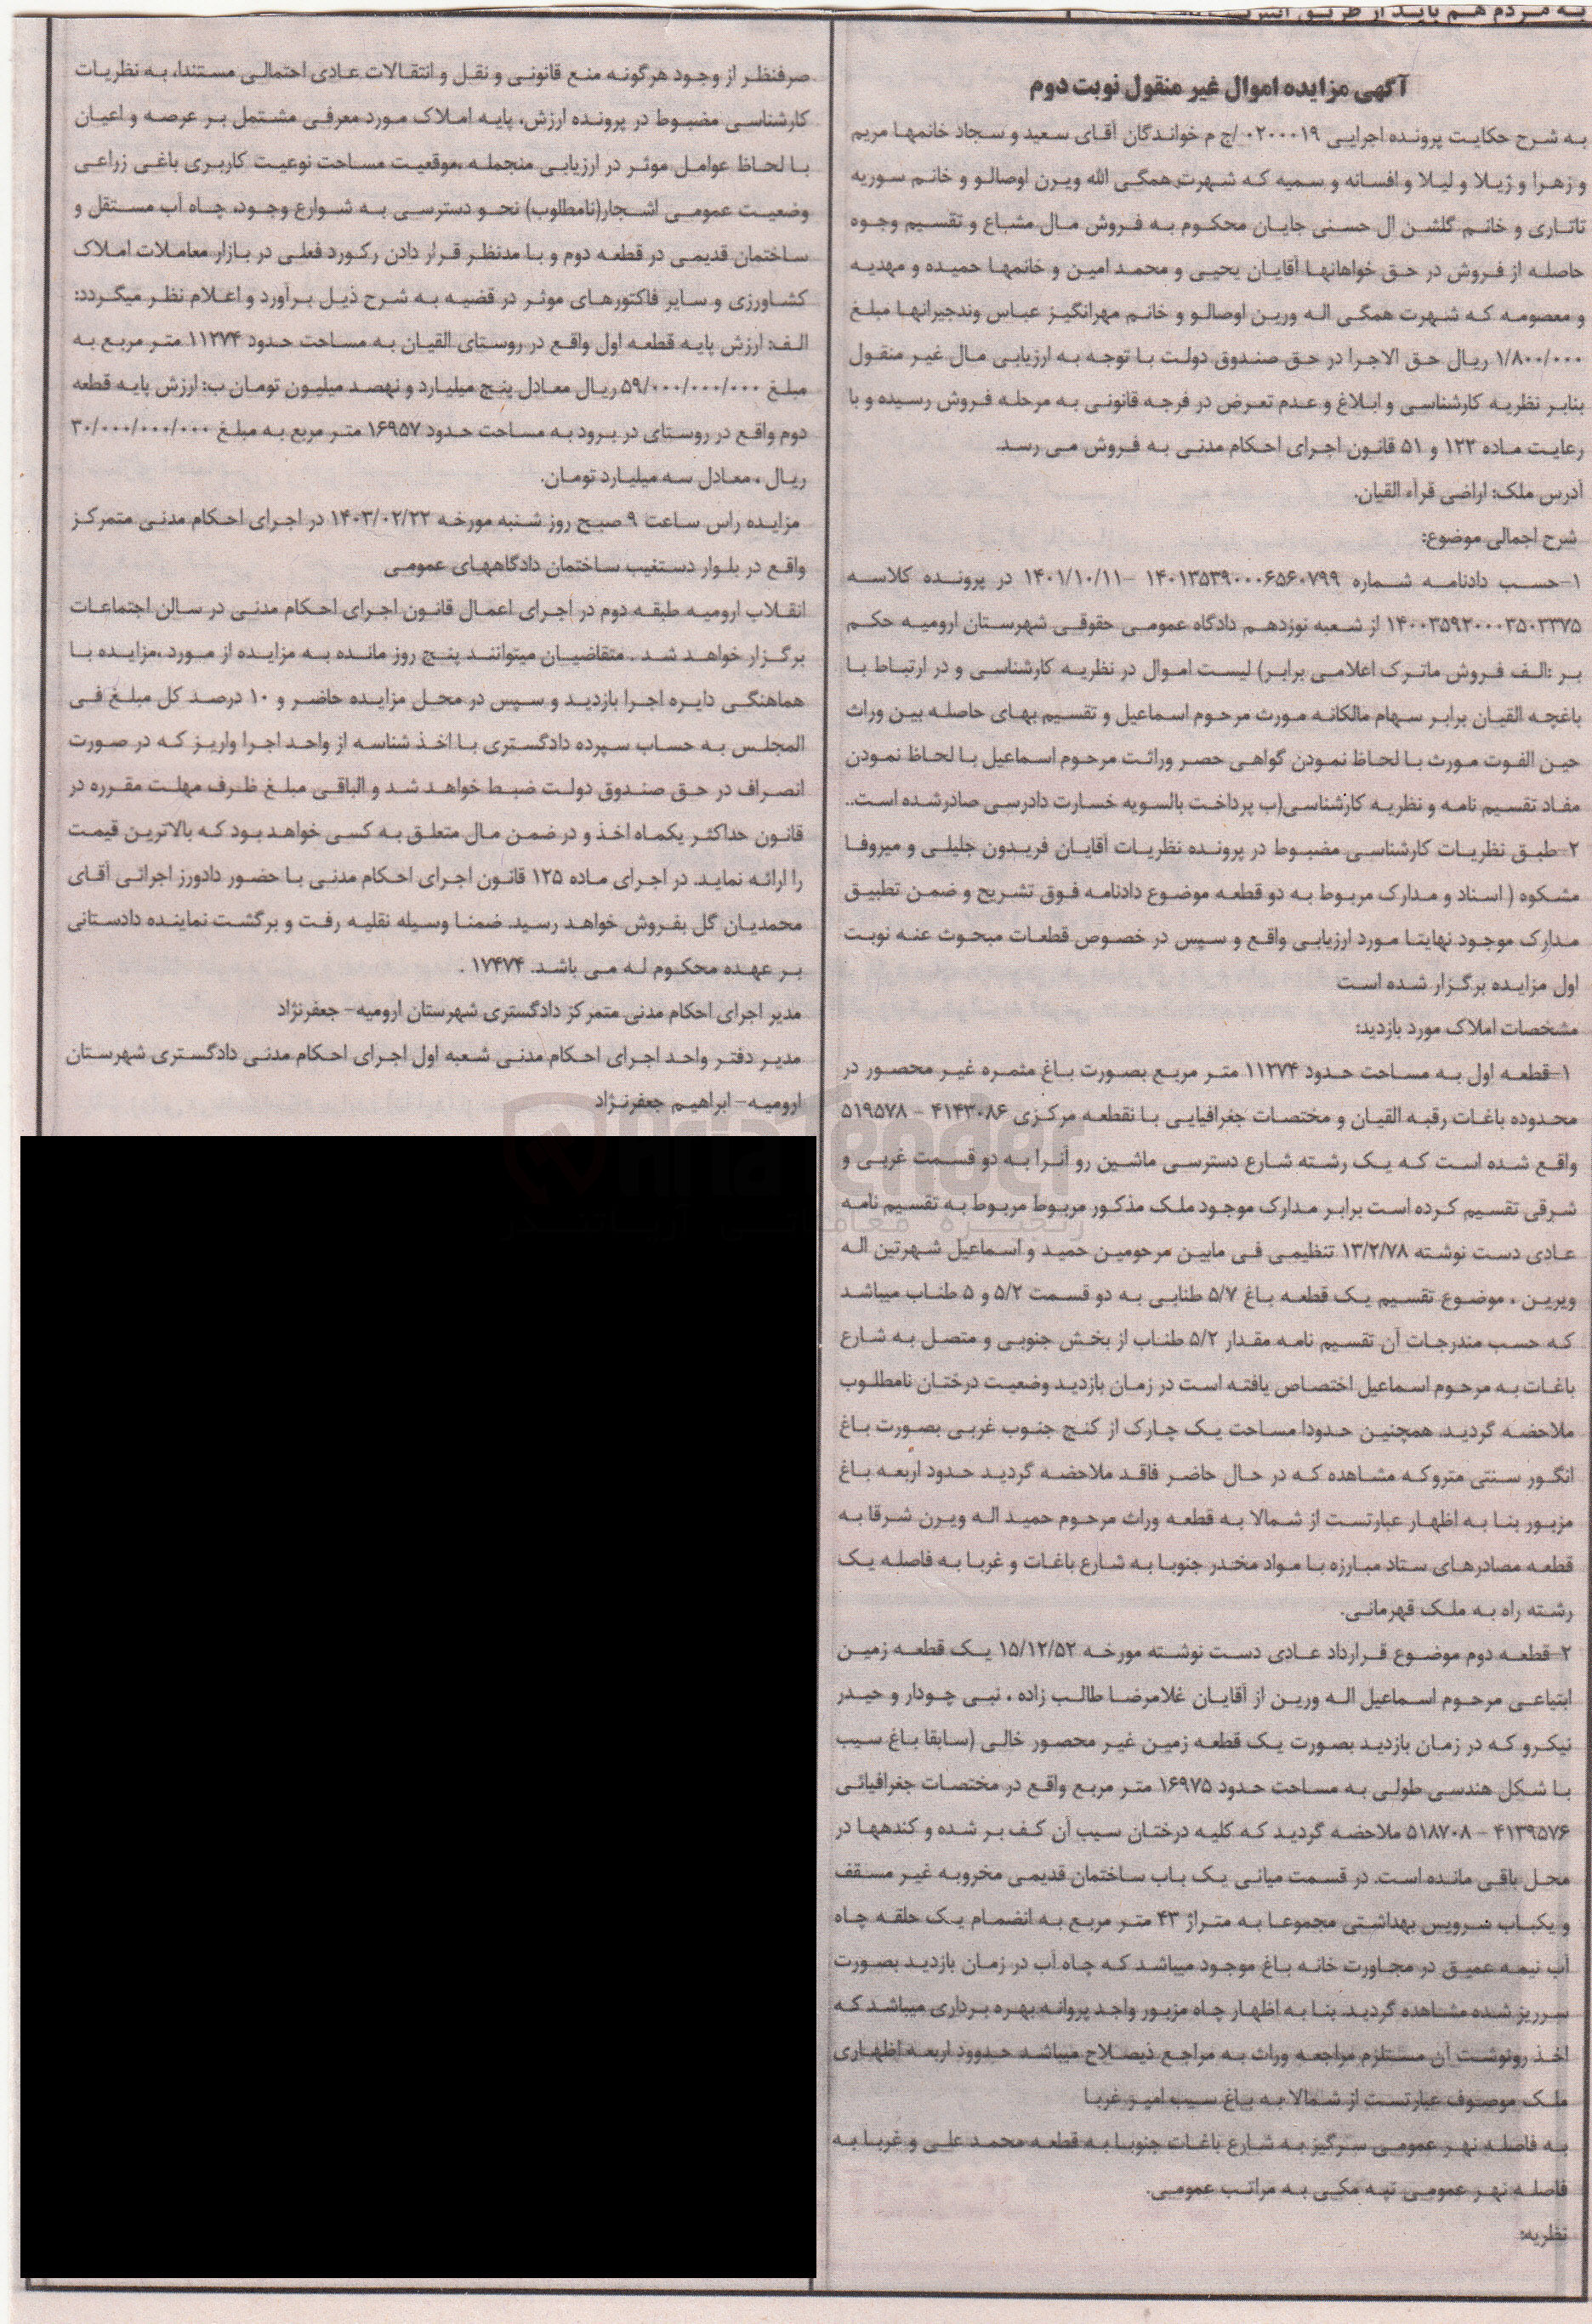 به مردم هم باید از طریق
آگهی مزایده اموال غیر منقول نوبت دوم
به شرح حکایت پرونده اجرایی ۰۲۰۰۰۱۹/ج م خواندگان آقای سعید و سجاد خانمها مریم
و زهرا و ژیلا و لیلا و افسانه و سمیه که شهرت همگی الله ویرن اوصالو و خانم سوریه
تاتاری و خانم گلشن ال حسنی جایان محکوم به فروش مال مشاع و تقسیم وجوه
حاصله از فروش در حق خواهانها آقایان یحیی و محمد امین و خانمها حمیده و مهدیه
و معصومه که شهرت همگی اله ورین اوصالو و خانم مهرانگیز عباس وندجیرانها مبلغ
۱/۸۰۰/۰۰۰ ریال حق الاجرا در حق صندوق دولت با توجه به ارزیابی مال غیر منقول
بنابر نظریه کارشناسی و ابلاغ و عدم تعرض در فرجه قانونی به مرحله فروش رسیده و با
رعایت ماده ۱۲۲ و ۵۱ قانون اجرای احکام مدنی به فروش می رسد.
آدرس ملک: اراضی قرآء القیان.
شرح اجمالی موضوع:
۱-حسب دادنامه شماره ۱۴۰۱۳۵۳۹۰۰۰۶۵۶۰۷۹۹ -۱۴۰۱/۱۰/۱۱ در پرونده کلاسه
۱۴۰۰۳۵۹۲۰۰۰۳۵۰۳۳۷۵ از شعبه نوزدهم دادگاه عمومی حقوقی شهرستان ارومیه حکم
بر :الف فروش ماترک اعلامی برابر) لیست اموال در نظریه کارشناسی و در ارتباط با
باغچه القیان برابر سهام مالکانه مورث مرحوم اسماعیل و تقسیم بهای حاصله بین وراث
حین الفوت مورث با لحاظ نمودن گواهی حصر وراثت مرحوم اسماعیل با لحاظ نمودن
مفاد تقسیم نامه و نظریه کارشناسی(ب پرداخت بالسویه خسارت دادرسی صادرشده است..
۲-طبق نظریات کارشناسی مضبوط در پرونده نظریات آقایان فریدون جلیلی و میروفا
مشکوه ( اسناد و مدارک مربوط به دو قطعه موضوع دادنامه فوق تشریح و ضمن تطبیق
مدارک موجود نهایتا مورد ارزیابی واقع و سپس در خصوص قطعات مبحوث عنه نوبت
اول مزایده برگزار شده است
مشخصات املاک مورد بازدید:
۱-قطعه اول به مساحت حدود ۱۱۲۷۴ متر مربع بصورت باغ مثمره غیر محصور در
محدوده باغات رقبه القیان و مختصات جغرافیایی با نقطعه مرکزی ۴۱۴۳۰۸۶ - ۵۱۹۵۷۸
واقع شده است که یک رشته شارع دسترسی ماشین رو آنرا به دو قسمت غربی و
شرقی تقسیم کرده است برابر مدارک موجود ملک مذکور مربوط مربوط به تقسیم نامه
عادی دست نوشته ۱۳/۲/۷۸ تنظیمی فی مابین مرحومین حمید و اسماعیل شهرتین اله
ویرین ، موضوع تقسیم یک قطعه باغ ۵/۷ طنابی به دو قسمت ۵/۲ و ۵ طناب میباشد
که حسب مندرجات آن تقسیم نامه مقدار ۵/۲ طناب از بخش جنوبی و متصل به شارع
باغات به مرحوم اسماعیل اختصاص یافته است در زمان بازدید وضعیت درختان نامطلوب
ملاحضه گردید. همچنین حدودا مساحت یک چارک از کنج جنوب غربی بصورت باغ
انگور سنتی متروکه مشاهده که در حال حاضر فاقد ملاحضه گردید حدود اربعه باغ
مزبور بنا به اظهار عبارتست از شمالا به قطعه وراث مرحوم حمید اله ویرن شرقا به
قطعه مصادرهای ستاد مبارزه با مواد مخدر جنوبا به شارع باغات و غربا به فاصله یک
رشته راه به ملک قهرمانی.
۲-قطعه دوم موضوع قرارداد عادی دست نوشته مورخه ۱۵/۱۲/۵۲ یک قطعه زمین
ابتیاعی مرحوم اسماعیل اله ورین از آقایان غلامرضا طالب زاده ، نبی چودار و حیدر
نیکرو که در زمان بازدید بصورت یک قطعه زمین غیر محصور خالی (سابقا باغ سیب
با شکل هندسی طولی به مساحت حدود ۱۶۹۷۵ متر مربع واقع در مختصات جغرافیائی
۴۱۳۹۵۷۶ - ۵۱۸۷۰۸ ملاحضه گردید که کلیه درختان سیب آن کف بر شده و کندهها در
محل باقی مانده است. در قسمت میانی یک باب ساختمان قدیمی مخروبه غیر مسقف
و یکباب سرویس بهداشتی مجموعا به متراژ ۴۳ متر مربع به انضمام یک حلقه چاه
آب نیمه عمیق در مجاورت خانه باغ موجود میباشد که چاه آب در زمان بازدید بصورت
سرریز شده مشاهده گردید. بنا به اظهار چاه مزبور واجد پروانه بهره برداری میباشد که
اخذ رونوشت آن مستلزم مراجعه وراث به مراجع ذیصلاح میباشد حدوود اربعه اظهاری
ملک موصوف عبارتست از شمالا به باغ سیب امیر غربا
به فاصله نهر عمومی سرگیز به شارع باغات جنوبا به قطعه محمد علی و غربا به
فاصله نهر عمومی تپه مکی به مراتب عمومی.
نظریه:
صرفنظر از وجود هرگونه منع قانونی و نقل و انتقالات عادی احتمالی مستندا، به نظریات
کارشناسی مضبوط در پرونده ارزش، پایه املاک مورد معرفی مشتمل بر عرصه و اعیان
با لحاظ عوامل موثر در ارزیابی منجمله ،موقعیت مساحت نوعیت کاربری باغی زراعی
وضعیت عمومی اشجار(نامطلوب) نحو دسترسی به شوارع وجود، چاه آب مستقل و
ساختمان قدیمی در قطعه دوم و با مدنظر قرار دادن رکورد فعلی در بازار معاملات املاک
کشاورزی و سایر فاکتورهای موثر در قضیه به شرح ذیل برآورد و اعلام نظر میگردد:
الف: ارزش پایه قطعه اول واقع در روستای القیان به مساحت حدود ۱۱۲۷۴ متر مربع به
مبلغ ۵۹/۰۰۰/۰۰۰/۰۰۰ ریال معادل پنج میلیارد و نهصد میلیون تومان ب: ارزش پایه قطعه
دوم واقع در روستای در برود به مساحت حدود ۱۶۹۵۷ متر مربع به مبلغ ۳۰/۰۰۰/۰۰۰/۰۰۰
ریال ، معادل سه میلیارد تومان.
مزایده راس ساعت ۹ صبح روز شنبه مورخه ۱۴۰۳/۰۲/۲۲ در اجرای احکام مدنی متمرکز
واقع در بلوار دستغیب ساختمان دادگاههای عمومی
انقلاب ارومیه طبقه دوم در اجرای اعمال قانون اجرای احکام مدنی در سالن اجتماعات
برگزار خواهد شد . متقاضیان میتوانند پنج روز مانده به مزایده از مورد ،مزایده با
هماهنگی دایره اجرا بازدید و سپس در محل مزایده حاضر و ۱۰ درصد کل مبلغ فی
المجلس به حساب سپرده دادگستری با اخذ شناسه از واحد اجرا واریز که در صورت
انصراف در حق صندوق دولت ضبط خواهد شد و الباقی مبلغ ظرف مهلت مقرره در
قانون حداکثر یکماه اخذ و در ضمن مال متعلق به کسی خواهد بود که بالاترین قیمت
را ارائه نماید. در اجرای ماده ۱۲۵ قانون اجرای احکام مدنی با حضور دادورز اجرائی آقای
محمدیان گل بفروش خواهد رسید. ضمنا وسیله نقلیه رفت و برگشت نماینده دادستانی
بر عهده محکوم له می باشد. ۱۷۴۷۴ .
مدیر اجرای احکام مدنی متمرکز دادگستری شهرستان ارومیه- جعفرنژاد
مدیر دفتر واحد اجرای احکام مدنی شعبه اول اجرای احکام مدنی دادگستری شهرستان
ارومیه- ابراهیم جعفرنژاد
AriaTender